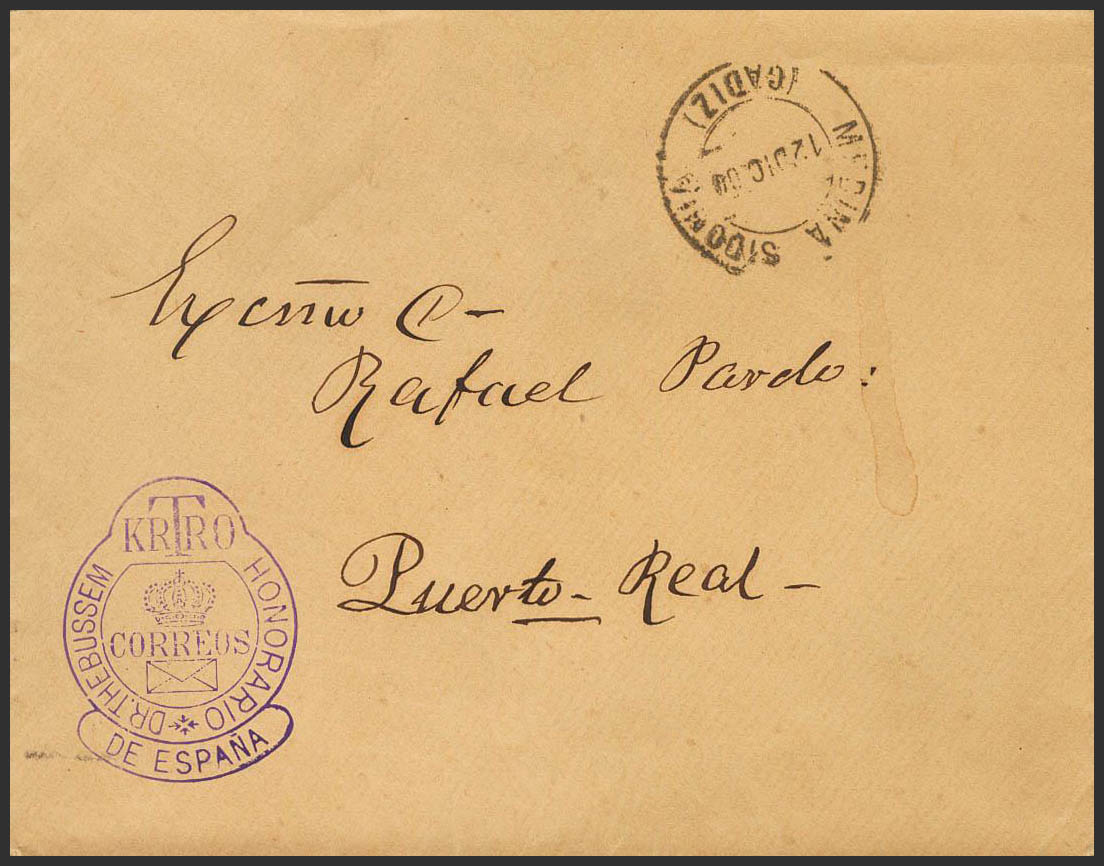 MEDINA SIDONIA
(CADIZ)
12 DIC. 00
Excmo
Rafael Pardo.
Puerto Real
KRTRO
DR. THEBUSSEM HONORARIO
CORREOS
DE ESPAÑA